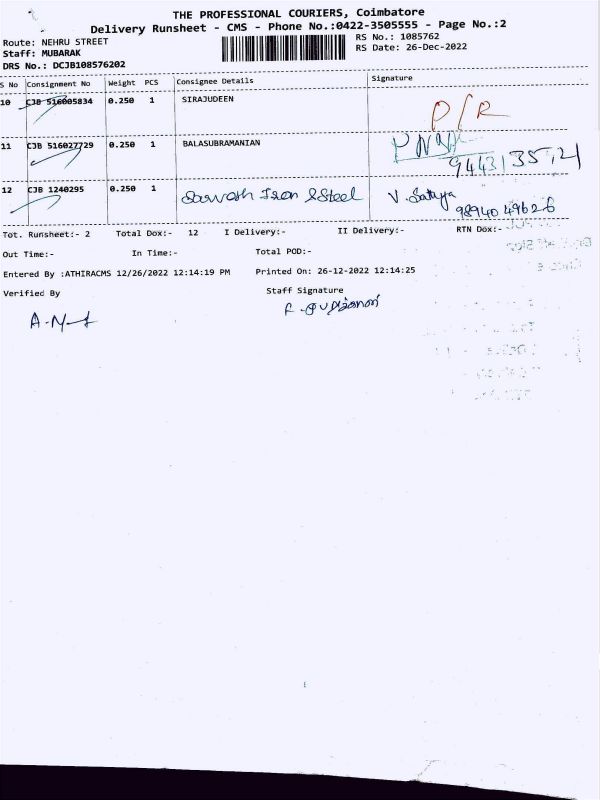 THE PROFESSIONAL COURIERS, Coimbatore
Delivery Runsheet - CMS - Phone No.:0422-3505555 - Page No.:2
Route: NEHRU STREET RS No.: 1085762
Staff: MUBARAK RS Date: 26-Dec-2022
DRS No.: DCJB108576202
S No Consignment No Weight PCS Consignee Details Signature
10 CJB 516005834 0.250 1 SIRAJUDEEN P/R
11 CJB 516027729 0.250 1 BALASUBRAMANIAN
12 CJB 1240295 0.250 1 Sarvesh Iron & Steel V. Sathya
98940 49626
Tot. Runsheet:- 2 Total Dox:- 12 I Delivery:- II Delivery:- RTN Dox:-
Out Time:- In Time:- Total POD:-
Entered By :ATHIRACMS 12/26/2022 12:14:19 PM Printed On: 26-12-2022 12:14:25
Verified By Staff Signature